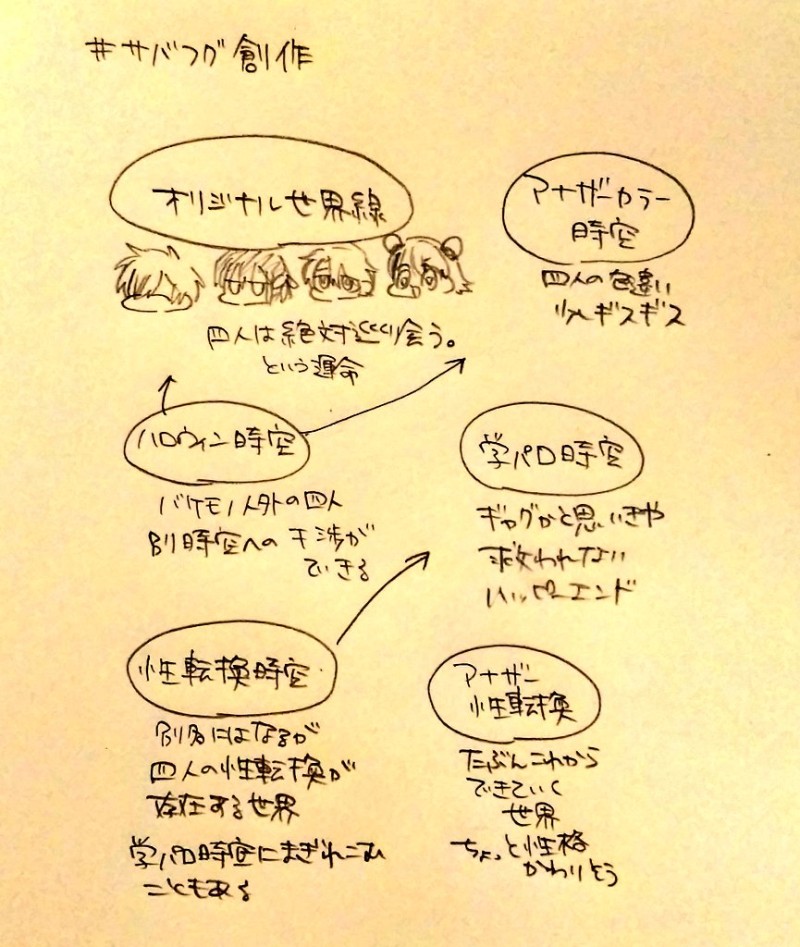 #サバフグ創作
オリジナル世界線
四人は絶対巡り会う。
という運命
アナザーカラー
時空
四人の色違い
少しギスギス
ハロウィン時空
バケモノ人外の四人
別時空への干渉が
できる
学パロ時空
ギャグかと思いきや
救われない
ハッピーエンド
性転換時空
別名にはなるが
四人の性転換が
存在する世界
学パロ時空にまぎれこむ
こともある
アナザー
性転換
たぶんこれから
できていく
世界
ちょっと性格
かわりそう